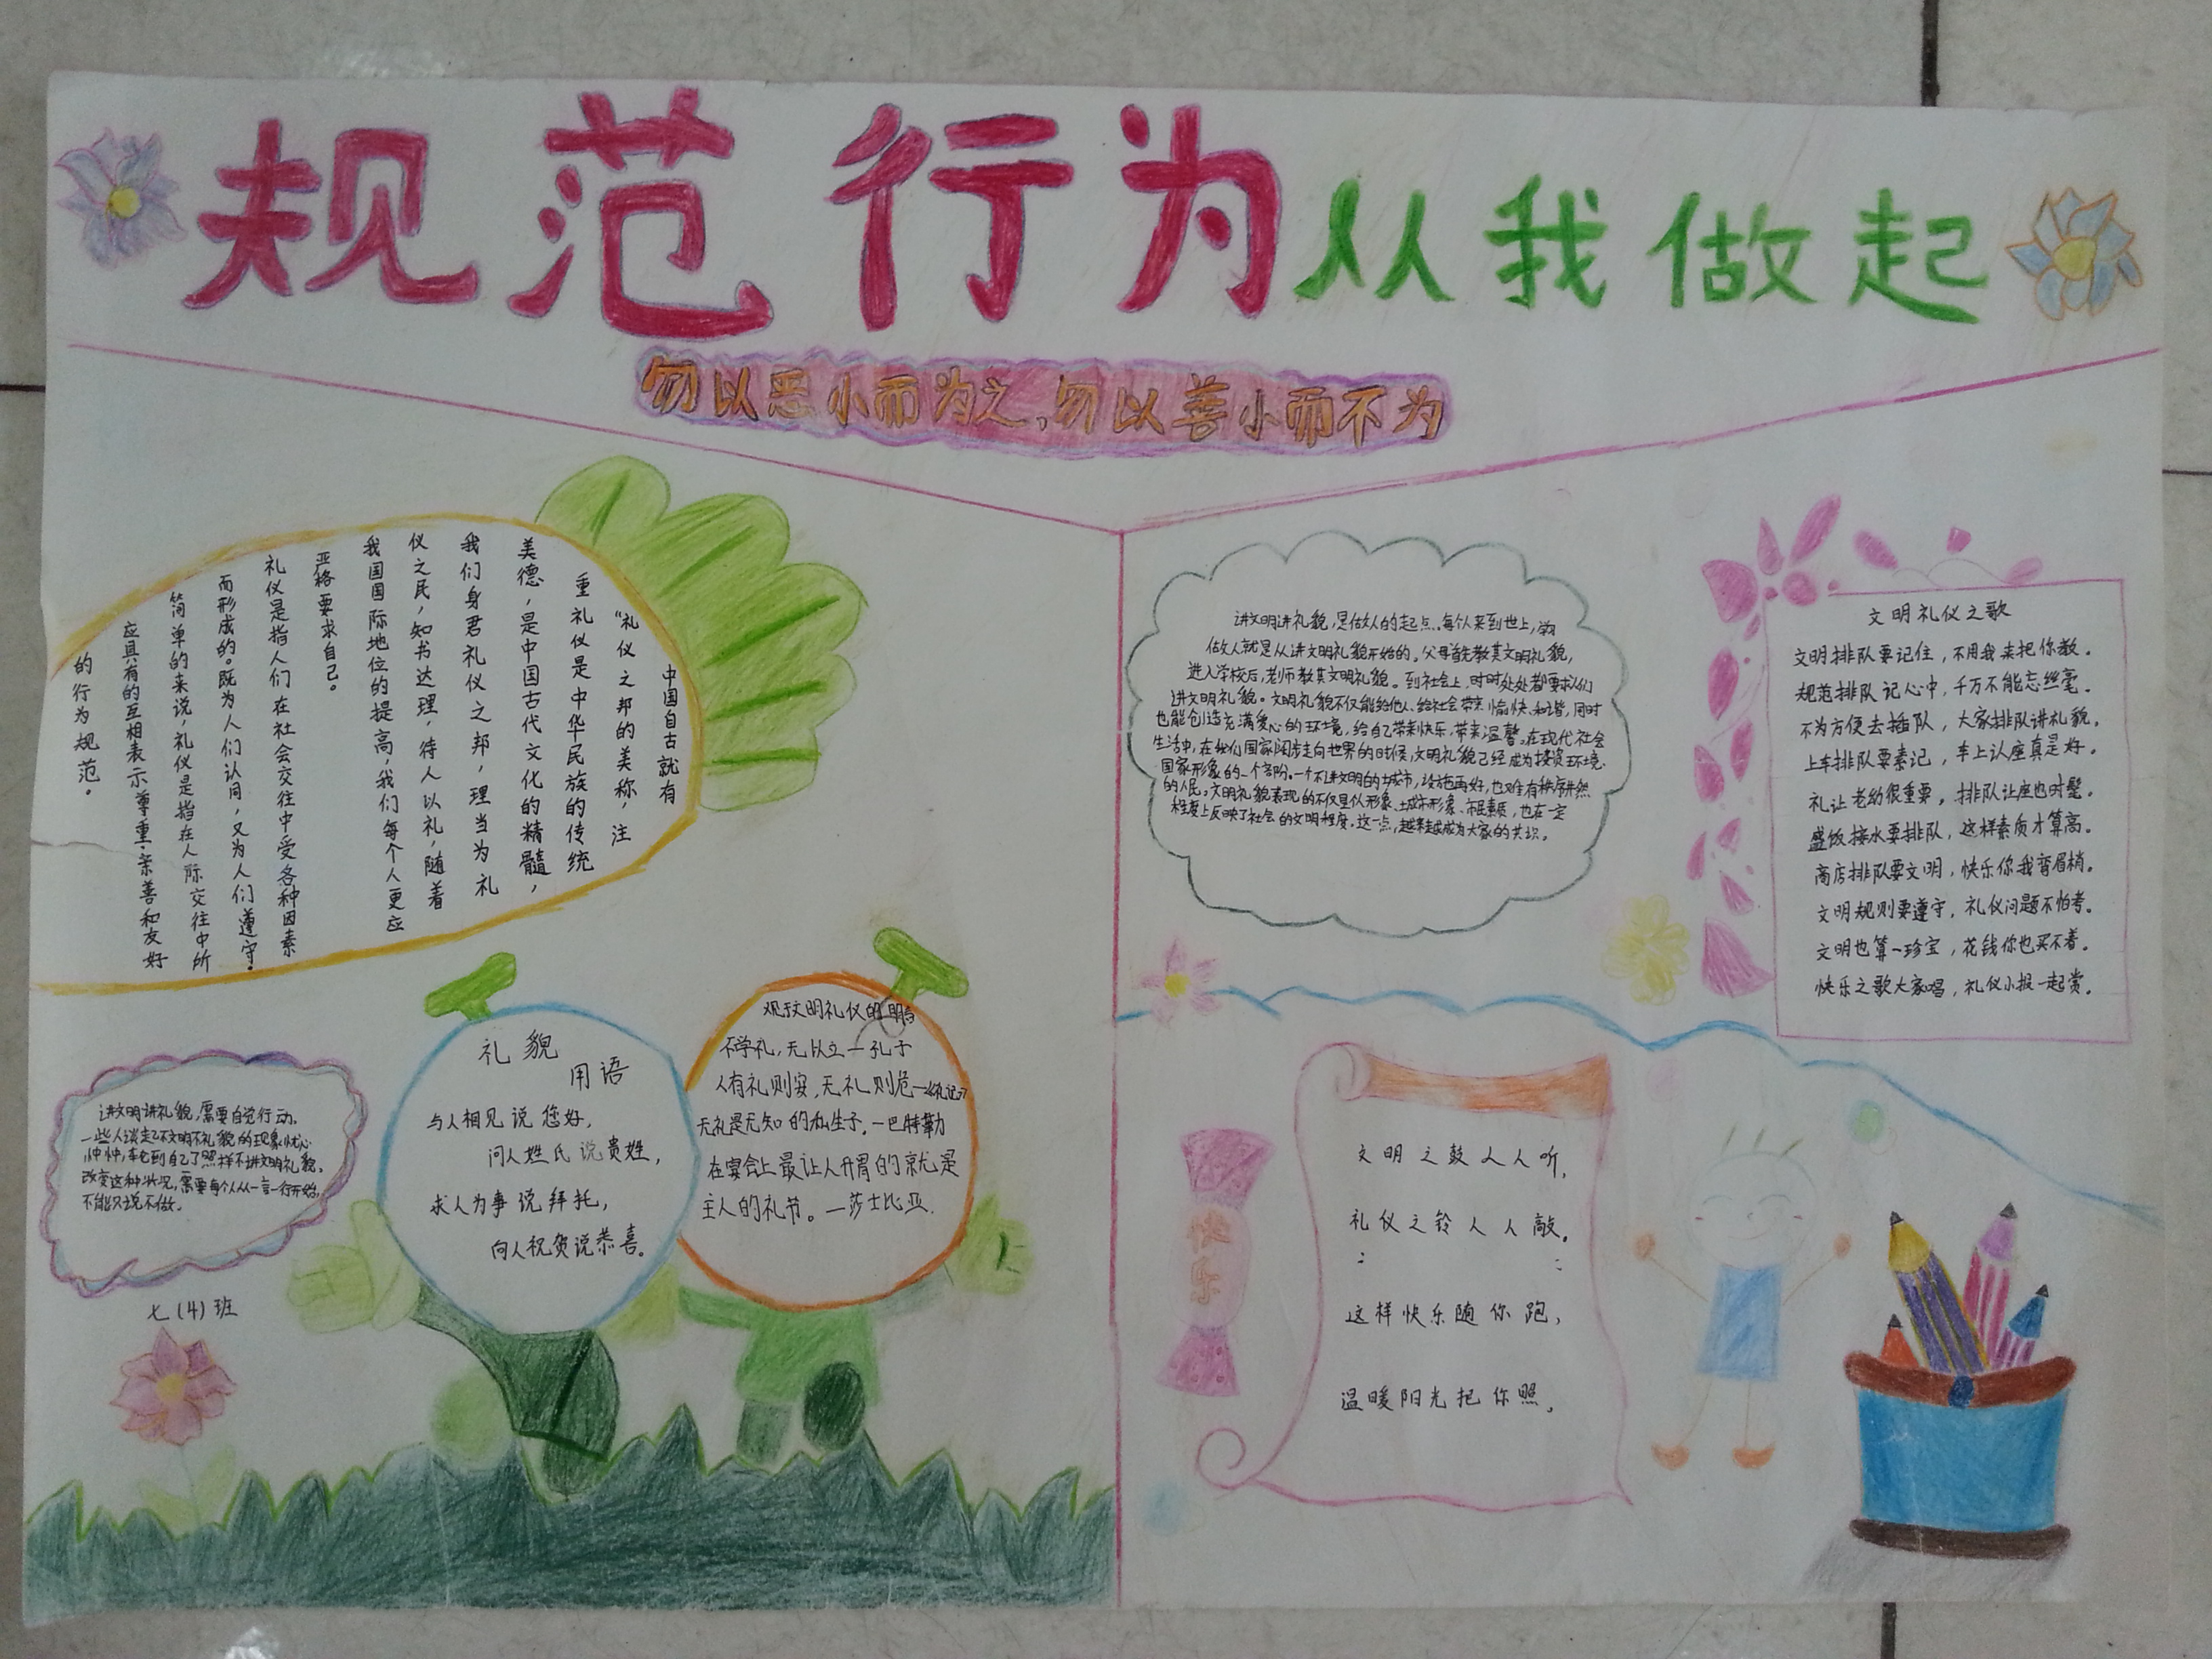 规范行为从我做起
勿以恶小而为之、勿以善小而不为
中国自古就有
“礼仪之邦的美称，注
重礼仪是中华民族的传统
美德，是中国古代文化的精髓，
我们身君礼仪之邦，理当为礼
仪之民，知书达理，待人以礼，随着
我国国际地位的提高，我们每个人更应
严格要求自己。
礼仪是指人们在社会交往中受各种因素
而形成的。既为人们认同，又为人们遵守。
简单的来说，礼仪是指在人际交往中所
应具有的互相表示尊重·亲善和友好
的行为规范。
讲文明讲礼貌，需要自觉行动。
一些人谈起不文明不礼貌的现象忧心
忡忡，轮到自己了照样不讲文明礼貌。
改变这种状况，需要每个人从一言一行开始，
不能只说不做。
七(4)班
礼貌
用语
与人相见说您好，
问人姓氏说贵姓，
求人为事说拜托，
向人祝贺说恭喜。
不学礼，无以立—孔子
人有礼则安，无礼则危—《礼记》
无礼是无知的私生子。—巴特勒
在宴会上最让人开胃的就是
主人的礼节。—莎士比亚
讲文明讲礼貌，是做人的起点。每个人来到世上，
做人就是从讲文明礼貌开始的。父母首先教其文明礼貌，
进入学校后，老师教其文明礼貌。到社会上，时时处处都要求人们
讲文明礼貌。文明礼貌不仅能给他人、给社会带来愉快、和谐，同时
也能创造充满爱心的环境，给自己带来快乐，带来温馨。在现代社会
生活中，在我们国家阔步走向世界的时候，文明礼貌已经成为投资环境、
国家形象的一个部份。一个不讲文明的城市，设施再好，也难有秩序井然
的人民。文明礼貌表现的不仅是个人形象、城市形象、市民素质，也在一定
程度上反映了社会的文明程度。这一点，越来越成为大家的共识。
文明礼仪之歌
文明排队要记住，不用我来把你教。
规范排队记心中，千万不能忘丝毫。
不为方便去插队，大家排队讲礼貌。
上车排队要素记，车上让座真是好。
礼让老幼很重要，排队让座也时髦。
盛饭接水要排队，这样素质才算高。
商店排队要文明，快乐你我弯眉梢。
文明规则要遵守，礼仪问题不怕考。
文明也算一珍宝，花钱你也买不着。
快乐之歌大家唱，礼仪小报一起赏。
快乐
文明之鼓人人听，
礼仪之铃人人敲。
这样快乐随你跑，
温暖阳光把你照。